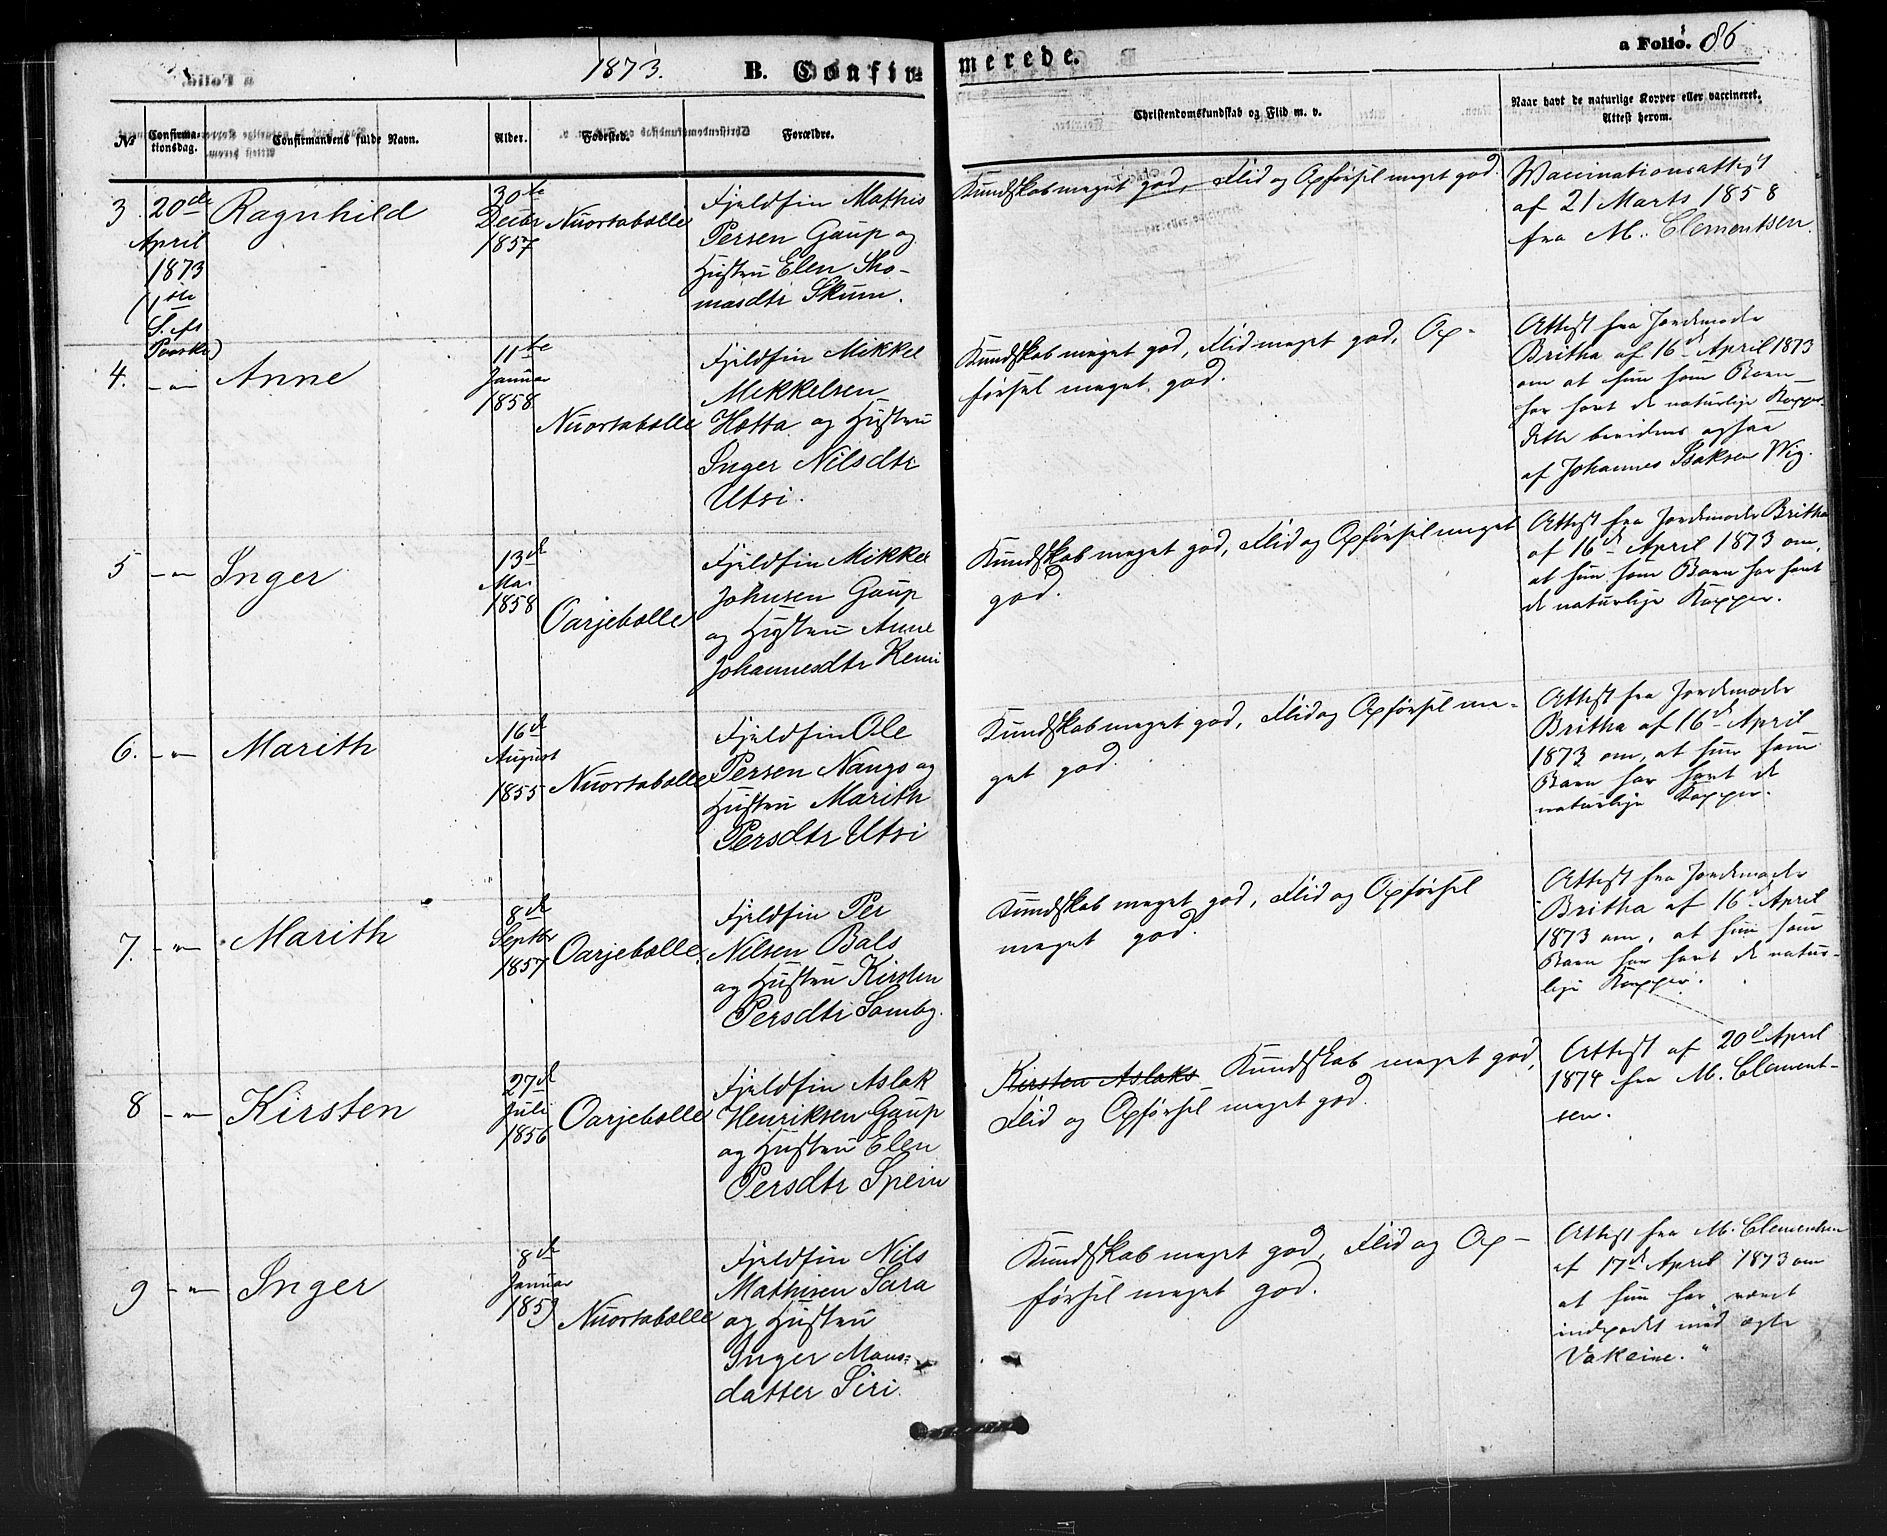 1873. B. Confir-
merede.
a Folio. 86
№
Confirma-
tionsdag.
Confirmandens fulde Navn.
Alder.
Fødested.
Forældre.
Christendomskundskab og Flid m. v.
Naar havt de naturlige Kopper eller vaccineret.
Attest herom.
3. 20de
April
1873
(1ste
S. ef.
Paaske)
Ragnhild
30te
Decbr
1857
Nuortabælle
Fjeldfin Mathis
Persen Gaup og
Hustru Elen Tho-
masdtr Skum.
Kundskab meget god, Flid og Opførsel meget god.
Vaccinationsattest
af 21 Marts 1858
fra M. Clementsen.
4. -"-
Anne
11te
Januar
1858
Nuortabælle
Fjeldfin Mikkel
Mikkelsen
Hætta og Hustru
Inger Nilsdtr
Utsi.
Kundskab meget god, Flid meget god, Op-
førsel meget god.
Attest fra Jordemoder
Britha af 16de April 1873
om at hun som Barn
har havt de naturlige Kopper.
Dette bevidnes ogsaa
af Johannes Isaksen Wig.
5 -"-
Inger
13de
Mai
1858
Oarjebælle
Fjeldfin Mikkel
Johnsen Gaup
og Hustru Anne
Johannesdtr Kemi
Kundskab meget god, Flid og Opførsel meget
god.
Attest fra Jordemoder Britha
af 16de April 1873 om,
at hun som Barn har havt
de naturlige Kopper.
6. -"-
Marith
16de
August
1855
Nuortabælle
Fjeldfin Ole
Persen Nango og
Hustru Marith
Persdtr Utsi
Kundskab meget god, Flid og Opførsel me-
get god.
Attest fra Jordemoder
Britha af 16de April
1873 om, at hun som
Barn har havt de
naturlige Kopper.
7. -"-
Marith
8de
Septbr
1857
Oarjebælle.
Fjeldfin Per
Nilsen Bals
og Hustru Kirsten
Persdtr Somby.
Kundskab meget god, Flid og Opførsel
meget god.
Attest fra Jordemoder
Britha af 16de April
1873 om, at hun som
Barn har havt de natur-
lige Kopper.
8 -"-
Kirsten
27de
Juli
1856
Oarjebælle
Fjeldfin Aslak
Henriksen Gaup
og Hustru Elen
Persdtr Spein
Kirsten Aslaks Kundskab meget god,
Flid og Opførsel meget god.
Attest af 20de April
1874 fra M. Clement-
sen.
9 -"-
Inger
8de
Januar
1859
Nuortabælle
Fjeldfin Nils
Mathisen Sara
og Hustru
Inger Mons-
datter Siri.
Kundskab meget god, Flid og Op-
førsel meget god.
Attest fra M. Clementsen
af 17de April 1873 om
at hun har "været
indpodet med ægte
Vakcine."